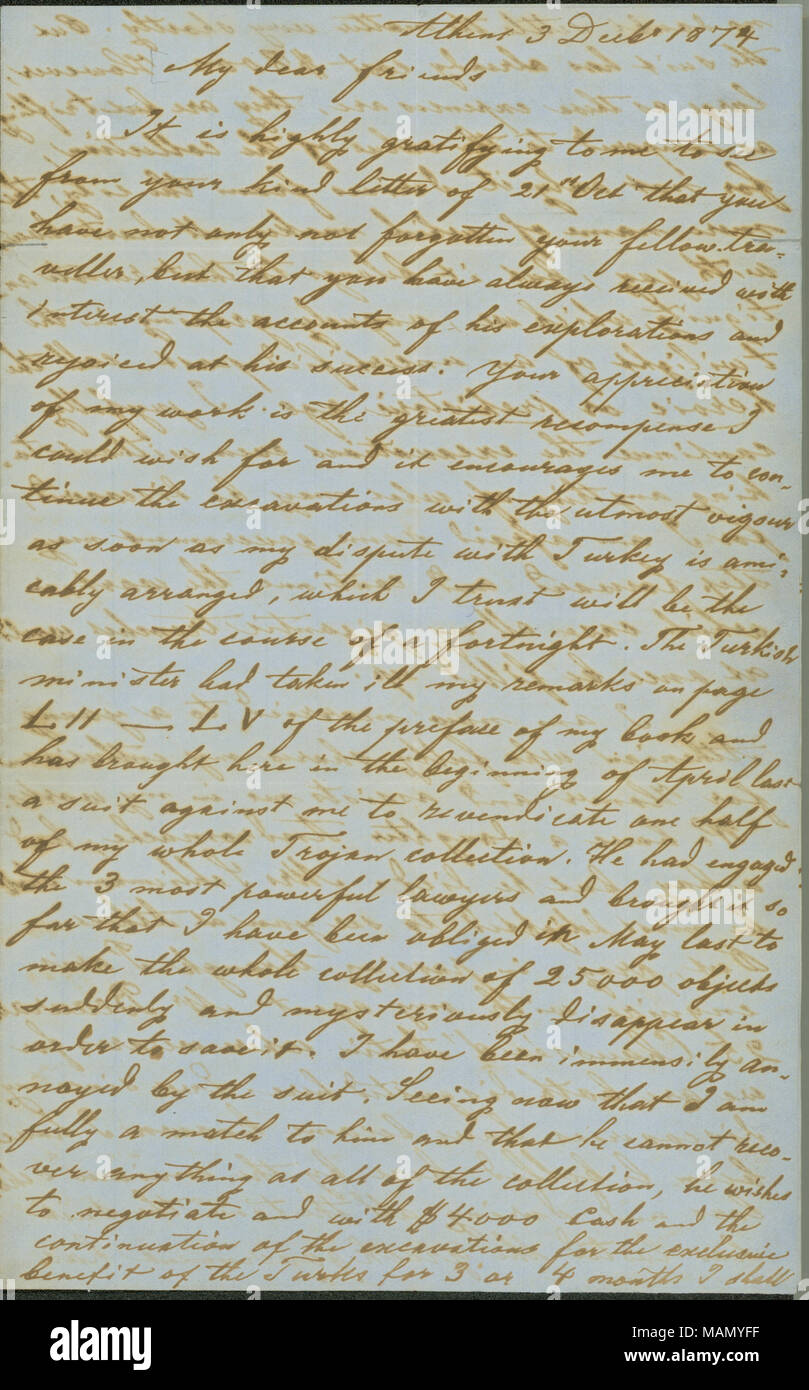 Athens 3 Decbr 1874
My dear friends
It is highly gratifying to me to see
from your kind letter of 21st Oct that you
have not only not forgotten your fellow-tra-
veller, but that you have always received with
interest the accounts of his explorations and
rejoiced at his success. Your appreciation
of my work is the greatest recompense I
could wish for and it encourages me to con-
tinue the excavations with the utmost vigour
as soon as my dispute with Turkey is ami-
cably arranged, which I trust will be the
case in the course of a fortnight. The Turkish
minister had taken ill my remarks on page
LII — LV of the preface of my book and
has brought here in the beginning of April last
a suit against me to revendicate one half
of my whole Trojan collection. He had engaged
the 3 most powerful lawyers and brought it so
far that I have been obliged in May last to
make the whole collection of 25000 objects
suddenly and mysteriously disappear in
order to save it. I have been immensily an-
noyed by the suit. Seeing now that I am
fully a match to him and that he cannot reco-
ver anything at all of the collection, he wishes
to negotiate and with $4000 Cash and the
continuation of the excavations for the exclusive
benefit of the Turks for 3 or 4 months I shall
alamy
alamy
alamy
a
a
alamy
Image ID: MAMYFF
www.alamy.com